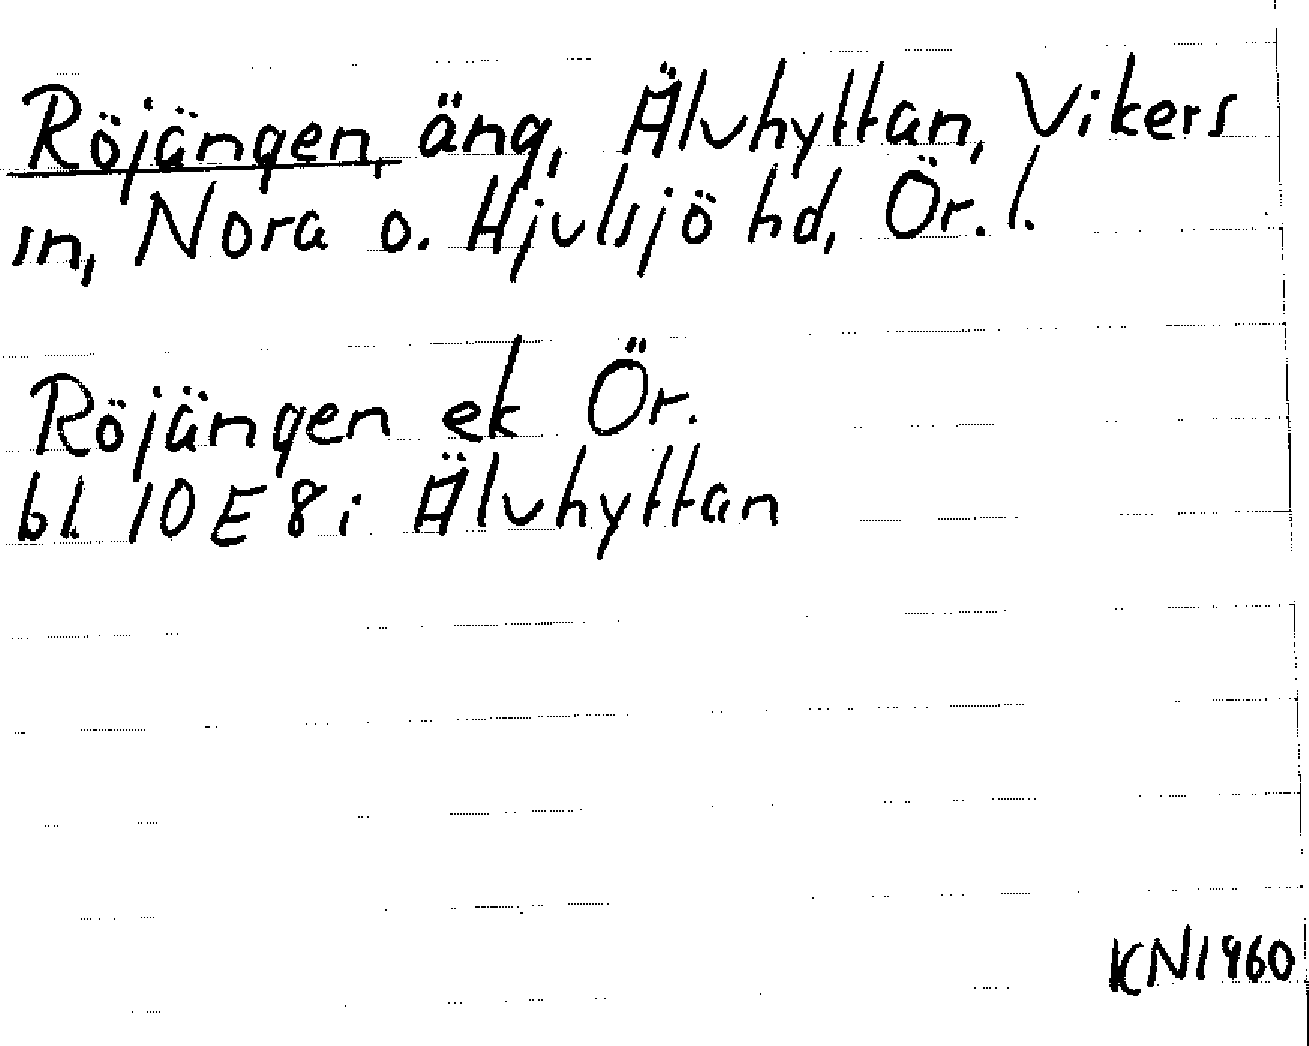 Röjängen, äng, Älvhyttan, Vikers
sn, Nora o. Hjulsjö hd, Ör. l.
Röjängen ek Ör.
bl. 10E8i Älvhyttan
KN1960